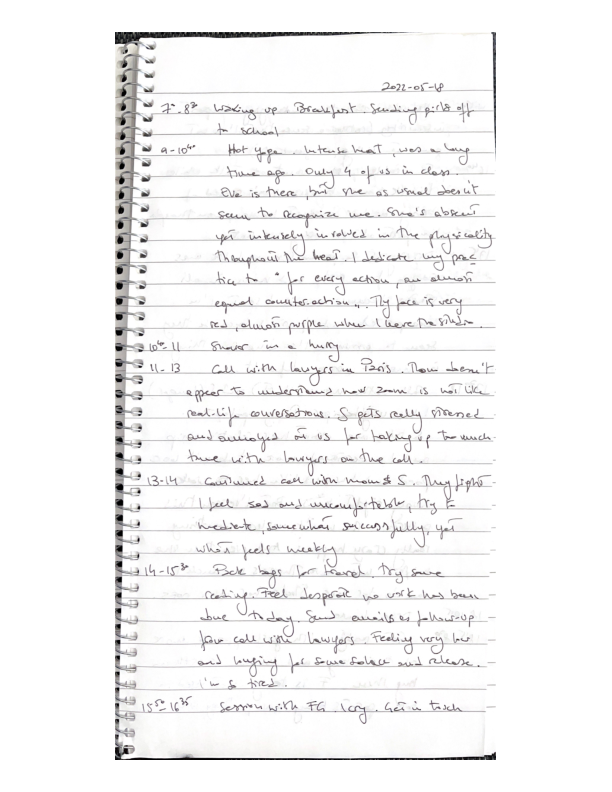 2022-05-18
7⁰-8³⁰ Waking up. Breakfast. Sending girls off
to school
9-10⁴⁰ Hot yoga. Intense heat, was a long
time ago. Only 4 of us in class.
Eva is there, but she as usual doesn't
seem to recognize me. She's absent
yet intensely involved in the physicality
throughout the heat. I dedicate my prac
tice to "for every action, an almost
equal counter.action". My face is very
red, almost purple when I leave the
10⁴⁰-11 Shower in a hurry
11-13 Call with lawyers in Paris. Mom doesn't
appear to understand how zoom is not like
real-life conversations. S gets really stressed
and annoyed at us for taking up too much
time with lawyers on the call.
13-14 Continued call with mom & S. They fight
I feel sad and uncomfortable, try to
mediate, somewhat successfully, yet
what feels weakly
14-15³⁰ Pack bags for travel. Try some
reading. Feel desperate no work has been
done today. Send emails as follow-up
from call with lawyers. Feeling very low
and longing for some solace and release.
I'm so tired.
15⁵⁰-16³⁵ Session with FG. I cry. Get in touch